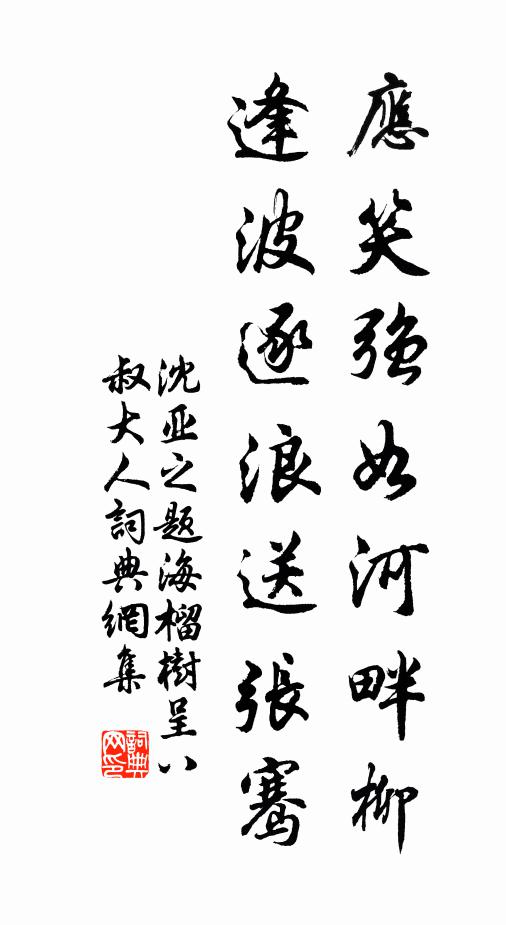 應笑強如河畔柳
逢波逐浪送張騫
沈亚之题海榴樹呈八
叔大人詞典網集
詞典网印